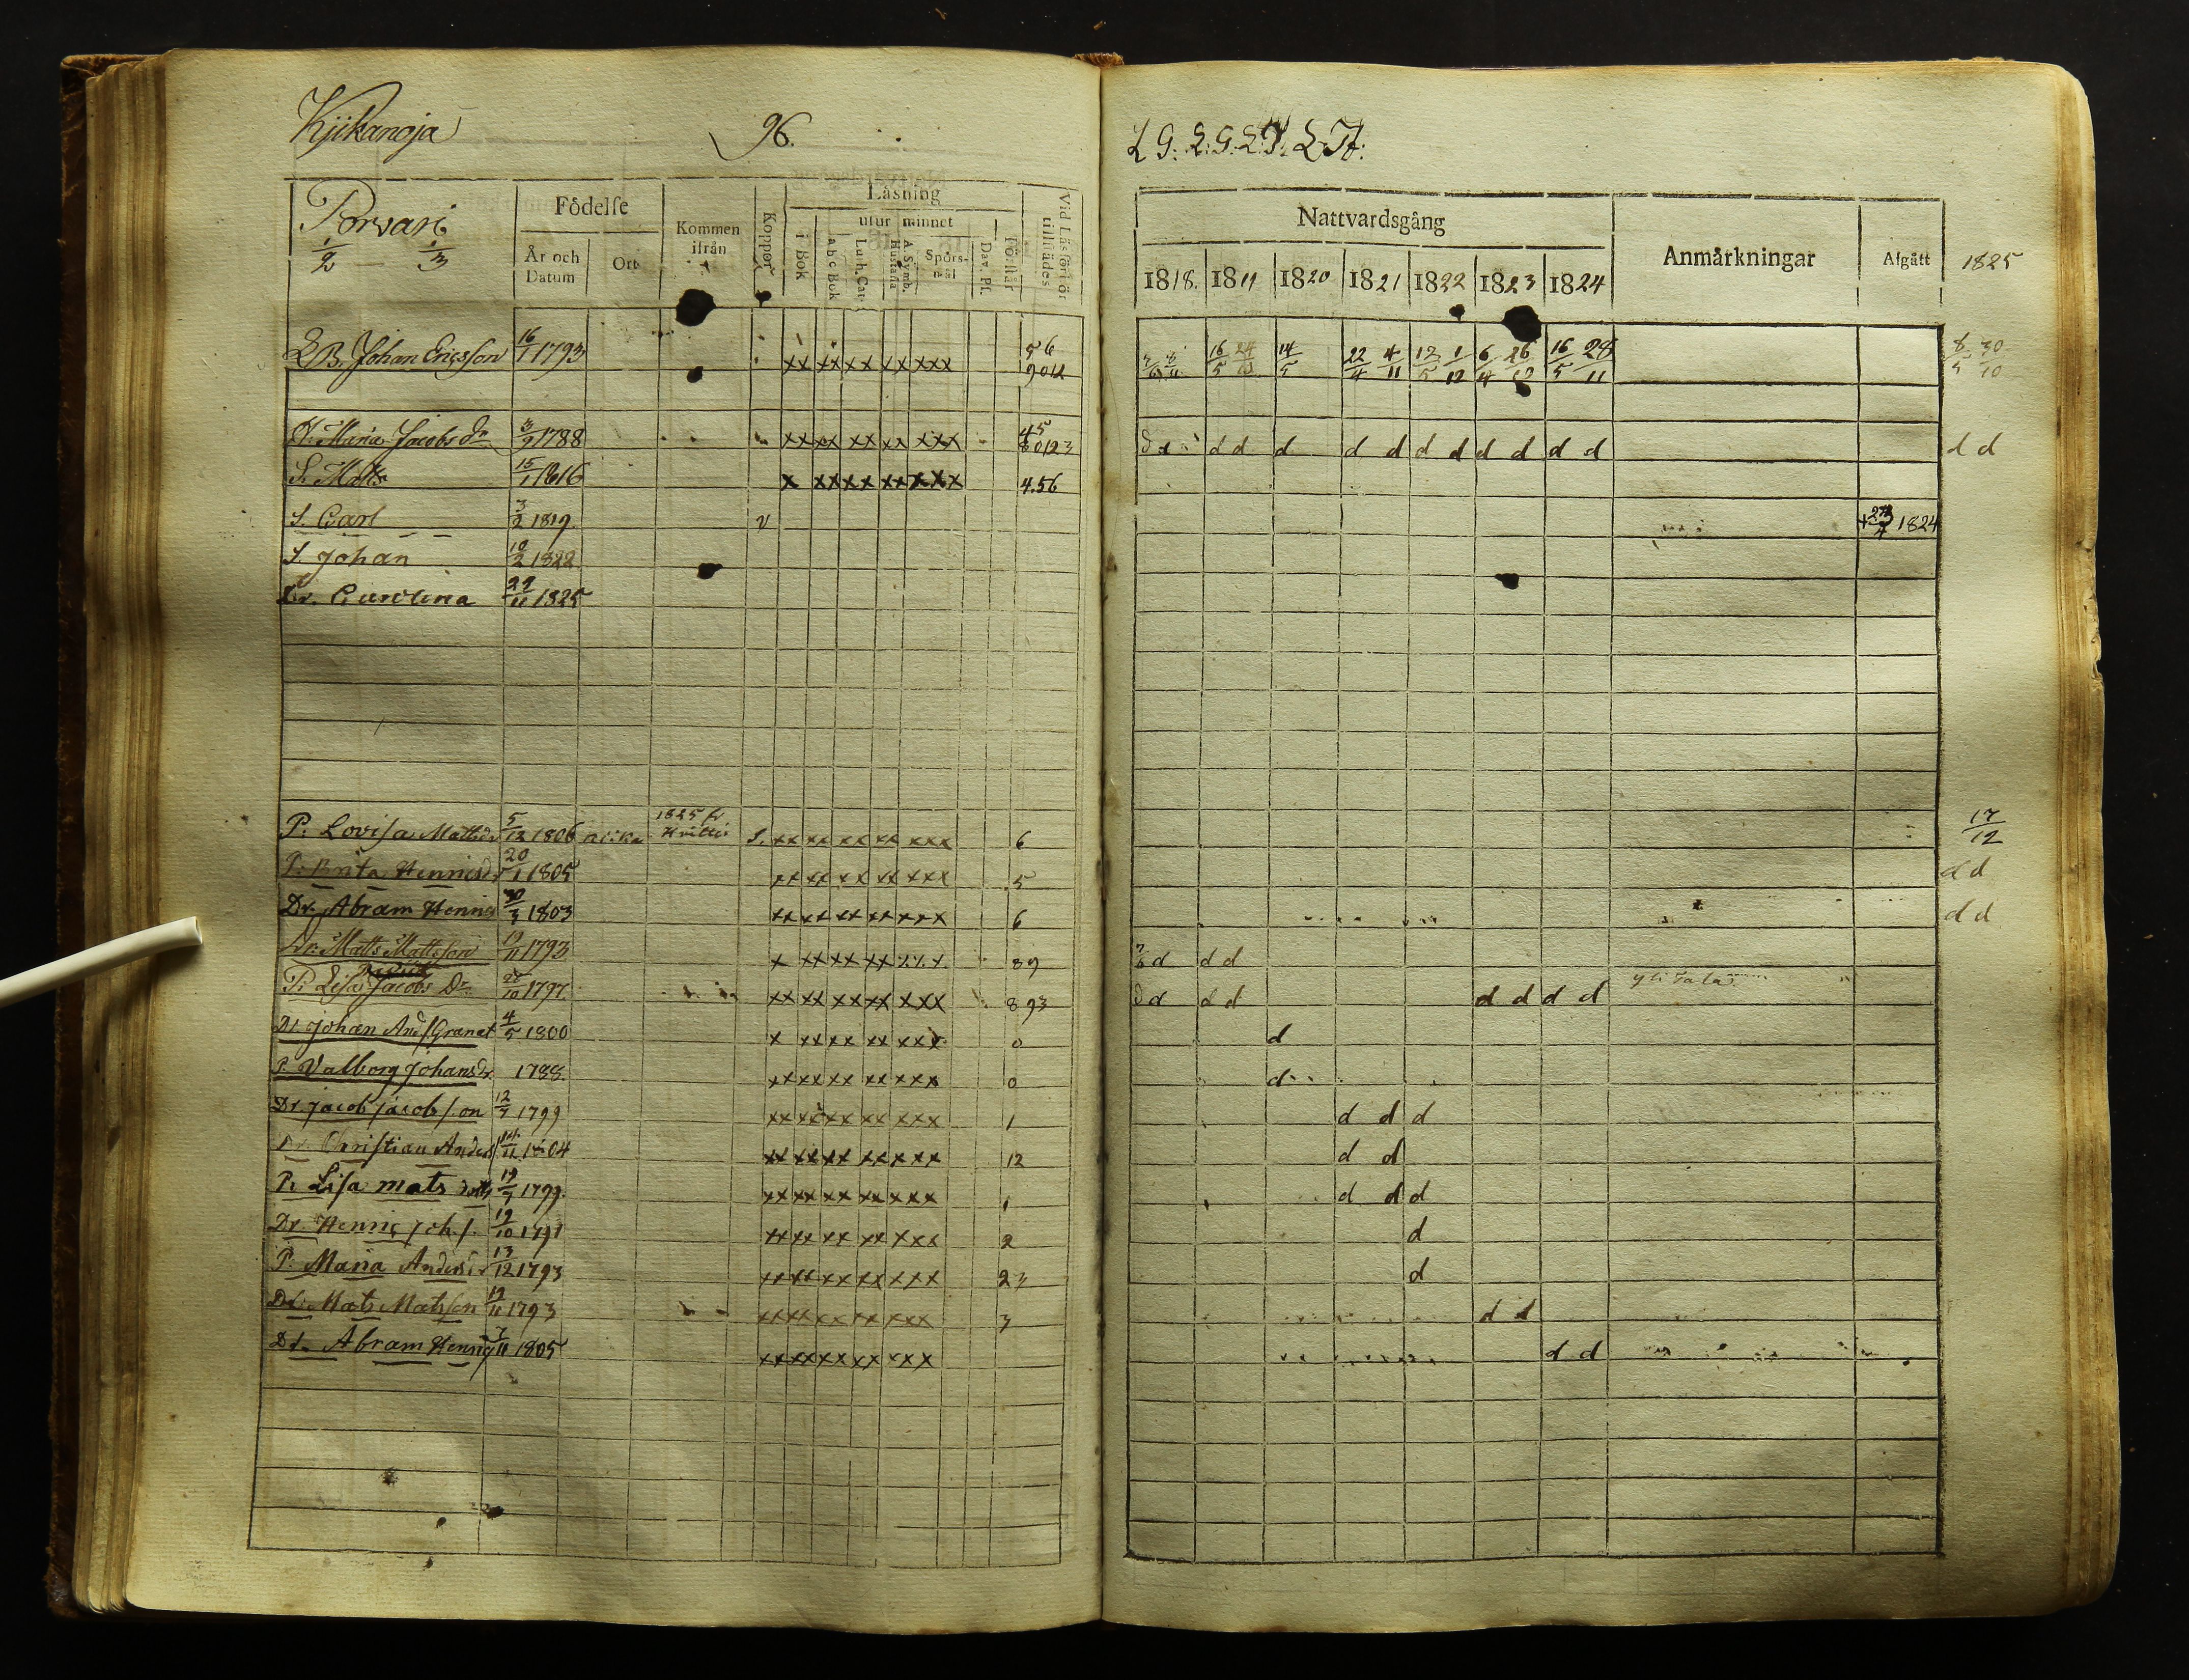 Kjikanoja 96.
Porvari
1/2 — 1/3
Födelse
År och Datum
Ort
Kommen ifrån
Koppor
Läsning
i Bok
utur minnet
a b c Bok
Luth. Cat.
A. Symb. Hustafla
Spörsmål
Dav. Ps.
Förstår
Vid Läsförhör tillstädes
LB. Johan Ericsson 16/1 1793 xx xx xx xx xxx 56 9012
H. Maria Jacobs dr 3/9 1788 xx xx xx xx xxx 45 80123
S. Matts 15/1 1816 x xx xx xx xxx 4.56
S. Carl 3/2 1819. v
S. Johan 10/2 1822.
Dr. Carolina 22/11 1825
P. Lovisa Mattsdr 5/12 1806 1825 fr Hvittis S. xx xx xx xx xxx 6
P. Brita Henricsdr 20/1 1805 xx xx xx xx xxx 5
Dr. Abram Henrics 30/3 1803 xx xx xx xx xxx 6
Dr. Matts Mattsson 19/11 1793 x xx xx xx xxx 89
P. Lisa Jacobs Dr. 1797. xx xx xx xx xxx 893
Dr. Johan And/Granat 4/5 1800 x xx xx xx xxx 0
P. Valborg Johansdr. 1788. xx xx xx xx xxx 0
Dr. Jacob Jacobsson 12/7 1799 xx xx xx xx xxx 1
Dr. Christian Anders 14/11 1804 xx xx xx xx xxx 12
P. Lisa mats dottr 1799. xx xx xx xx xxx 1
Dr. Henric Joh.s. 19/10 1791 xx xx xx xx xxx 2
P. Maria Andersdr 13/12 1793 xx xx xx xx xxx 23
Dr. Mats Matsson 19/11 1793 xx xx xx xx xxx 3
Dr. Abram Henric 7/11 1805 xx xx xx xx xxx
L G. L. G. L. P. L. H.
Nattvardsgång
Anmärkningar
Afgått
1818. 1819 1820 1821 1822 1823 1824 1825
16/5 24/10 14/5 22/4 4/11 12/5 1/12 6/4 26/10 16/5 28/11 8/5 30/10
d d d d d d d d d d d d d d d
+ 23/4 1824
17/12
d d
d d
d d d
d d d d d d d yli tala
d
d
d d d
d d
d d d
d
d
d d
d d